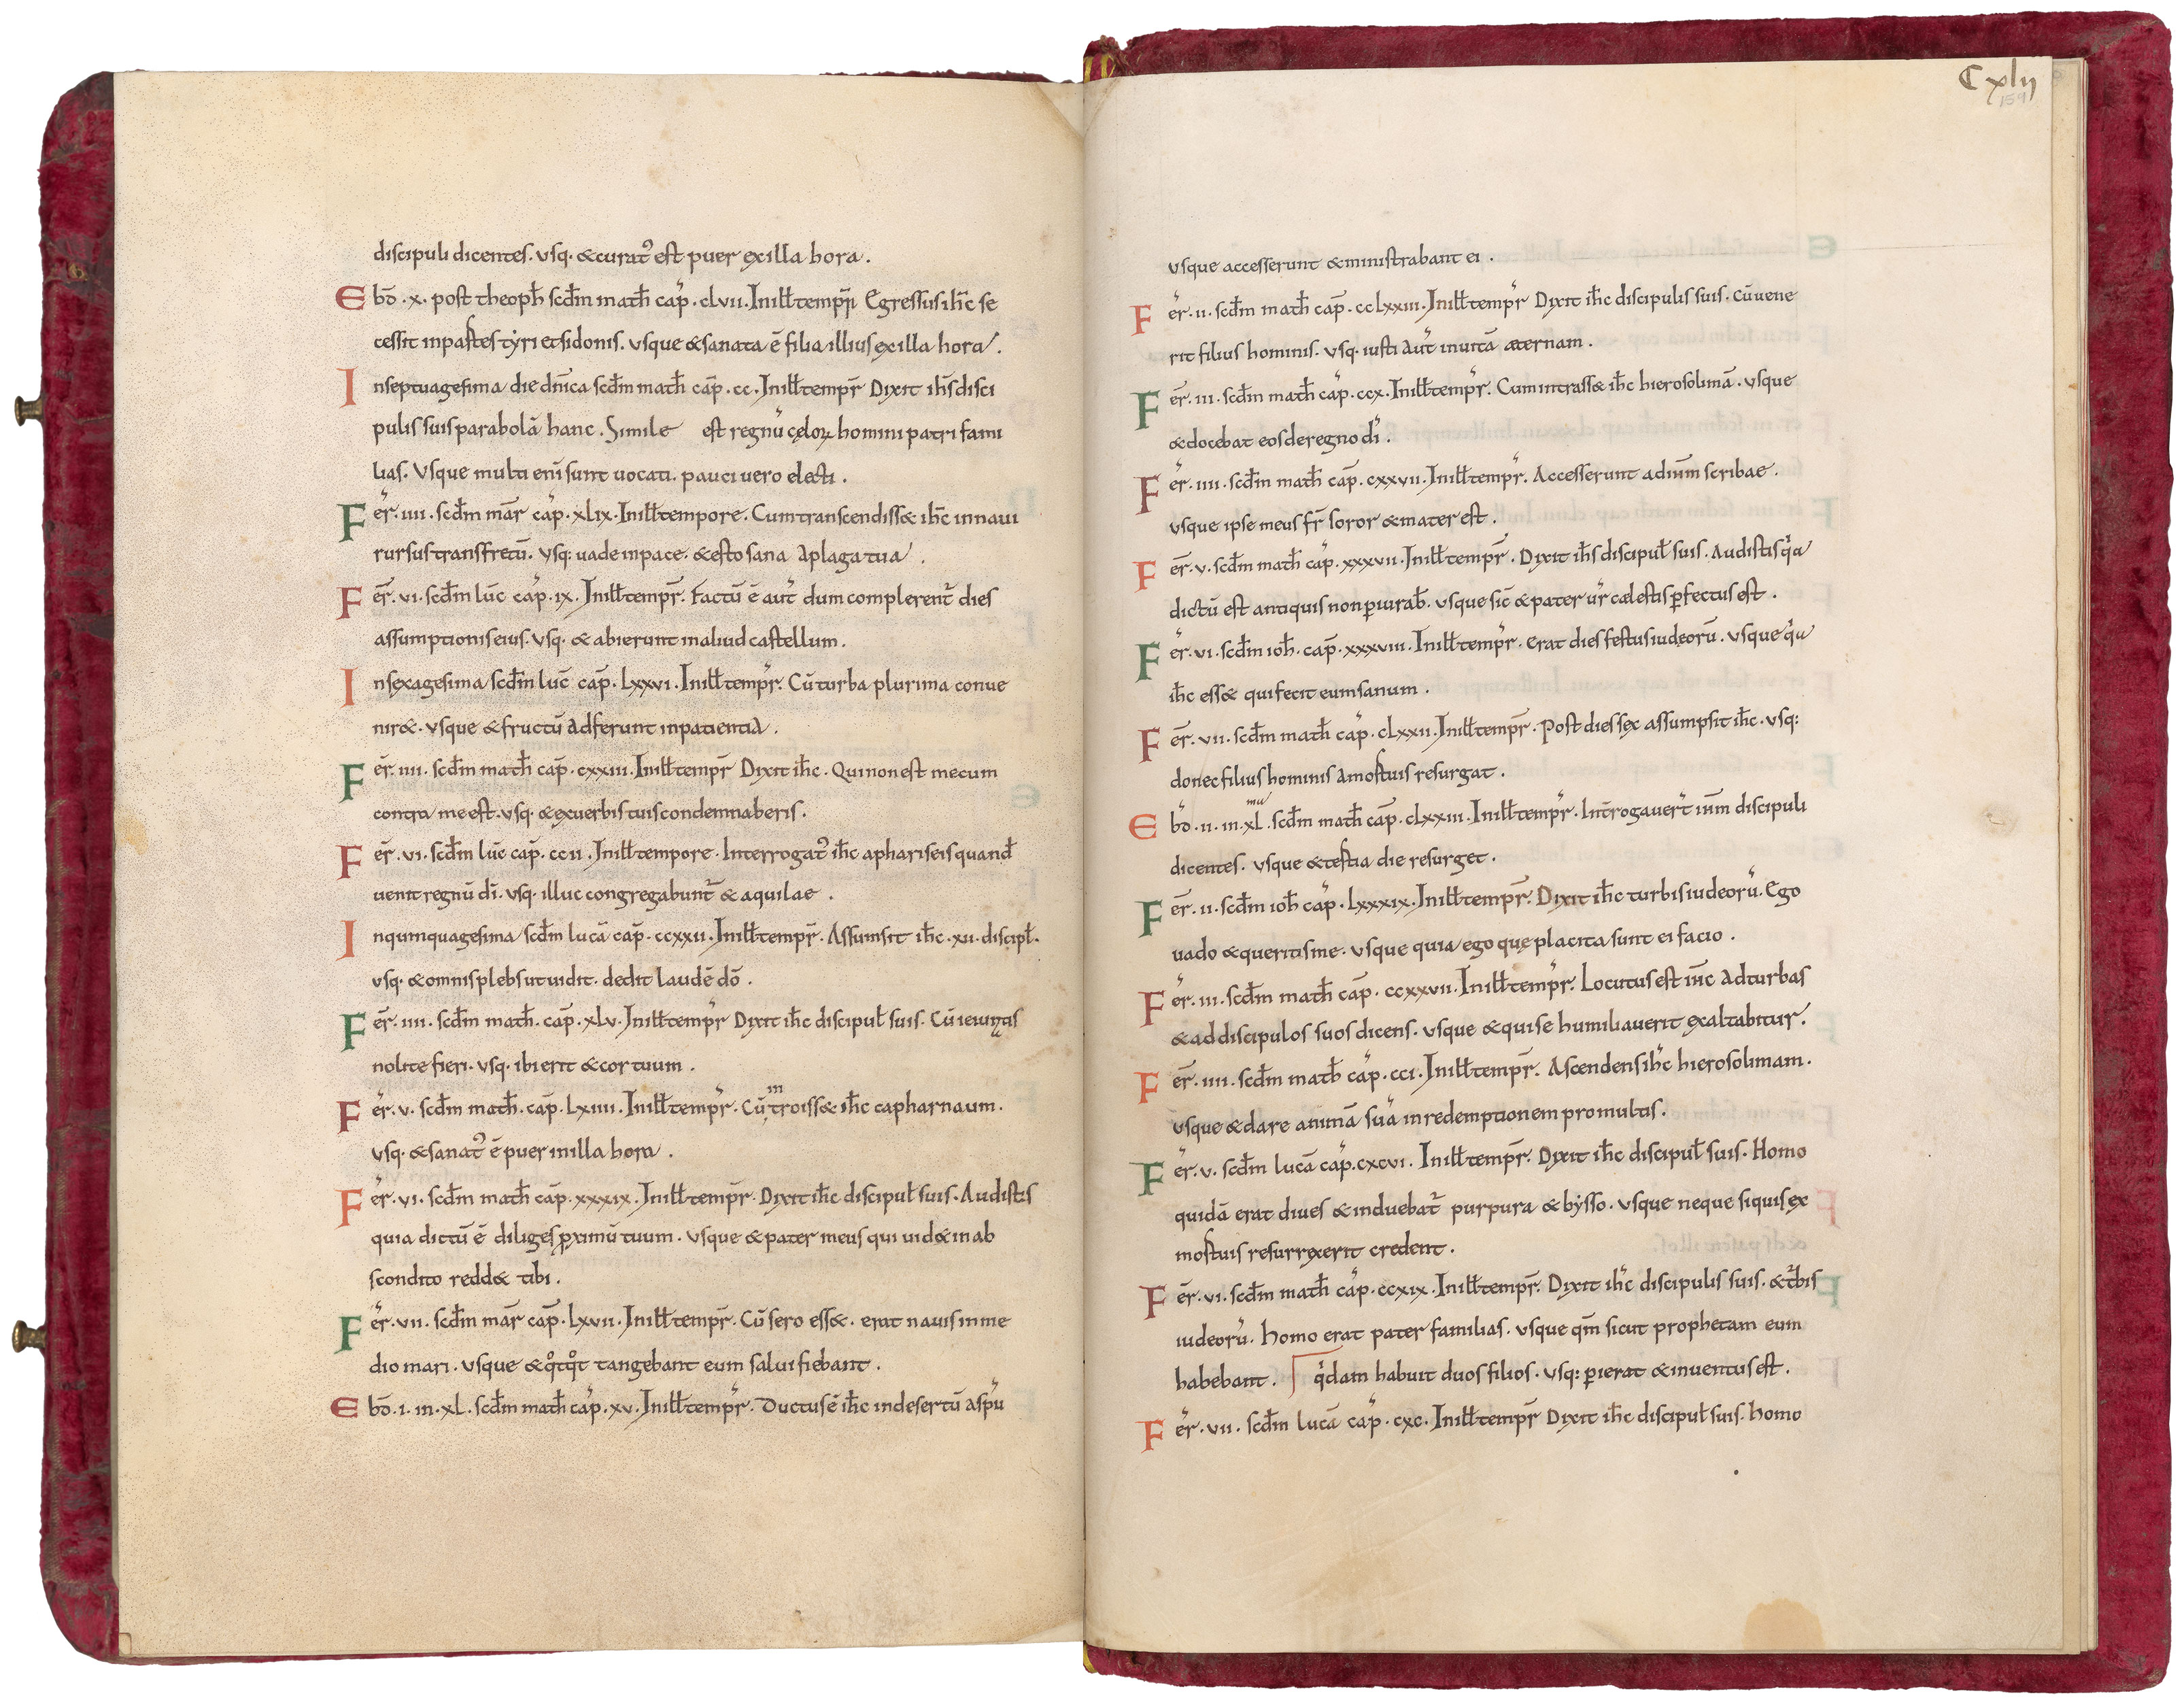 discipuli dicentes. usq· &curat᾽ est puer exilla hora.
Ebd̄·x· post theoph̄ scd̄m math̄ cap̄·clvii·Inill̄tempr̄i Egressus ih̄c se
cessit inpartes tẏri &sidonis. usque &sanata ē filia illius exilla hora.
Inseptuagesima die dn̄ica scd̄m math̄ cap̄·cc·Inill̄tempr̄ Dixit ih̄s disci
pulis suis parabolā hanc. Simile est regnū cęloꝝ homini patri fami
lias. Usque multi enī sunt uocati. pauci uero electi.
Fer̄·iiii·scd̄m mar̄ cap̄·xlix·Inill̄tempore. Cum transcendiss& ih̄c innaui
rursus transfretū. usq: uade inpace. &esto sana aplaga tua.
Fer̄·vi·scd̄m luc̄ cap̄·ix·Inill̄tempr̄. Factū ē aut̄ dum complerent᷑ dies
assumptionis eius. usq· & abierunt inaliud castellum.
Insexagesima scd̄m luc̄ cap̄·lxxvi·Inill̄tempr̄. Cū turba plurima conue
nir&. usque &fructū adferunt inpatientia.
Fer̄·iiii·scd̄m math̄ cap̄·cxxiii·Inill̄tempr̄ Dixit ih̄c. Qui non est mecum
contra me est. usq· &exuerbis tuis condemnaberis.
Fer̄·vi·scd̄m luc̄ cap̄·ccii·Inill̄tempore. Interrogat᾽ ih̄c aphariseis quand̄
uenit regnū dī. usq· illuc congregabunt᷑ & aquilae.
Inquinquagesima scd̄m lucā cap̄·ccxxii·Inill̄tempr̄. Assumsit ih̄c·xii·discipl̄.
usq· &omnis plebs utuidit. dedit laudē dō.
Fer̄·iiii·scd̄m math̄·cap̄·xlv·Inill̄tempr̄ Dixit ih̄c discipul̄ suis. Cū ieiunatis
nolite fieri. usq· ibi erit &cor tuum.
Fer̄·v·scd̄m math̄·cap̄·lxiiii·Inill̄tempr̄. Cū introiss& ih̄c capharnaum.
usq· &sanat᾽ ē puer inilla hora.
Fer̄·vi·scd̄m math̄ cap̄·xxxix·Inill̄tempr̄. Dixit ih̄c discipul̄ suis. Audistis
quia dictū ē diliges ꝓximū tuum. usque &pater meus qui uid& inab
scondito redd& tibi.
Fer̄·vii·scd̄m mar̄ cap̄·lxvii·Inill̄tempr̄. Cū sero ess&. erat nauis inme
dio mari. usque &qͦtqͦt tangebant eum salui fiebant.
Ebd̄·i·in·xl·scd̄m math̄ cap̄·xv·Inill̄tempr̄. Ductus ē ih̄c indesertū aspū
Cxlij
159
usque accesserunt &ministrabant ei.
Fer̄·ii·scd̄m math̄ cap̄·cclxxiii·Inill̄tempr̄ Dixit ih̄c discipulis suis. cū uene
rit filius hominis. usq· iusti aut̄ inuitā aeternam.
Fer̄·iii·scd̄m math̄ cap̄·ccx·Inill̄tempr̄. Cum intrass& ih̄c hierosolimā. usque
&docebat eos de regno dī.
Fer̄·iiii·scd̄m math̄ cap̄·cxxvii·Inill̄tempr̄. Accesserunt adih̄m scribae.
usque ipse meus fr̄ soror &mater est.
Fer̄·v·scd̄m math̄ cap̄·xxxvii·Inill̄tempr̄. Dixit ih̄s discipul̄ suis. Audistis qͥa
dictū est antiquis non ꝑiurab̄. usque sic̄ &pater ur̄ cælestis ꝑfectus est.
Fer̄·vi·scd̄m ioh̄·cap̄·xxxviii·Inill̄tempr̄. erat dies festus iudeorū. usque qͥa
ih̄c ess& qui fecit eum sanum.
Fer̄·vii·scd̄m math̄ cap̄·clxxii·Inill̄tempr̄. Post dies sex assumpsit ih̄c. usq:
donec filius hominis amortuis resurgat.
Ebd̄·ii·in·xl·ma scd̄m math̄ cap̄·clxxiii·Inill̄tempr̄. Int̄rogauer̄t ih̄m discipuli
dicentes. usque &tertia die resurget.
Fer̄·ii·scd̄m ioh̄ cap̄·lxxxix·Inill̄tempr̄. Dixit ih̄c turbis iudeorū. Ego
uado &queritis me. usque quia ego que placita sunt ei facio.
Fer̄·iii·scd̄m math̄ cap̄·ccxxvii·Inill̄tempr̄. Locutus est ih̄c adturbas
&addiscipulos suos dicens. usque &qui se humiliauerit exaltabitur.
Fer̄·iiii·scd̄m math̄ cap̄·cci·Inill̄tempr̄. Ascendens ih̄c hierosolimam.
usque &dare animā suā inredemptionem promultis.
Fer̄·v·scd̄m lucā cap̄·cxcvi·Inill̄tempr̄. Dixit ih̄c discipul̄ suis. Homo
quidā erat diues &induebat᷑ purpura &bẏsso. usque neque siquis ex
mortuis resurrexerit credent.
Fer̄·vi·scd̄m math̄ cap̄·ccxix·Inill̄tempr̄. Dixit ih̄c discipulis suis. &t᷑bis
iudeorū. homo erat pater familias. usque qm̄ sicut prophetam eum
habebant. qͥdam habuit duos filios. usq: ꝑierat &inuentus est.
Fer̄·vii·scd̄m lucā cap̄·cxc·Inill̄tempr̄ Dixit ih̄c discipul̄ suis. homo